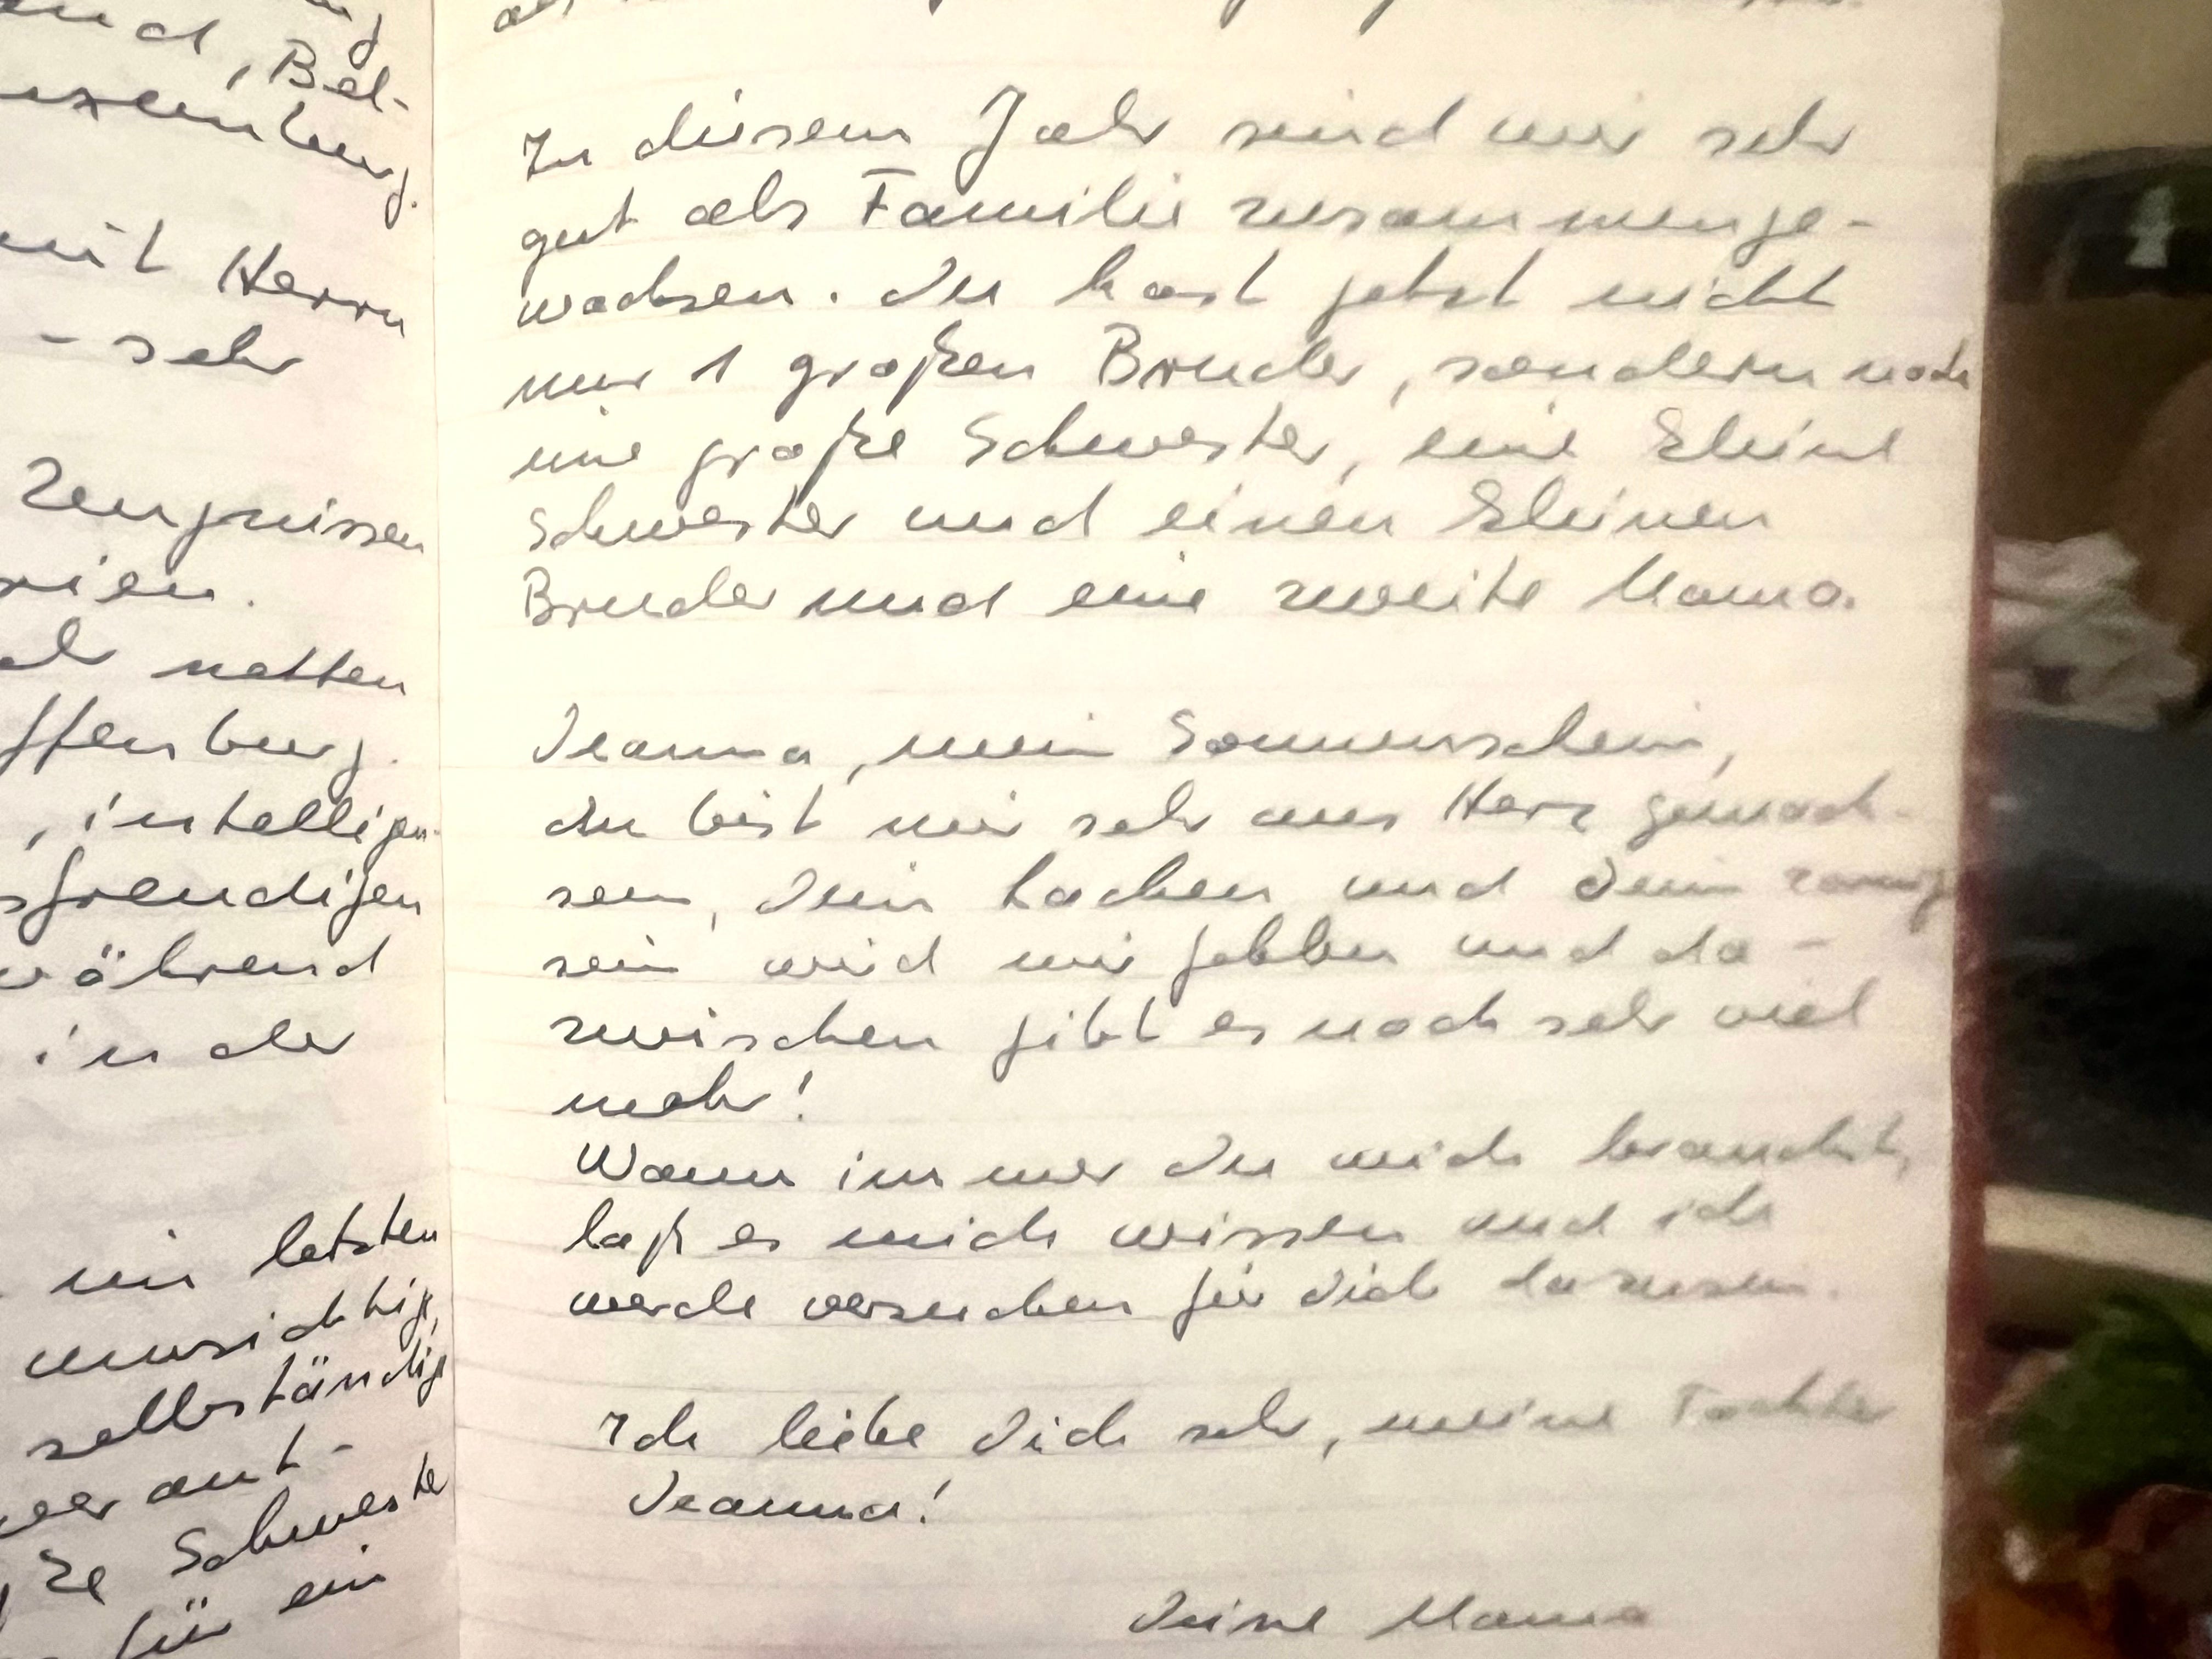 nd, Bel-
uxemburg.
mit Herrn
- sehr
Zeugnissen
rien.
netten
ffenburg.
, intelligen-
sfreudigen
während
in der
letzten
umsichtig,
selbständig
verant-
ße Schwester
für ein
In diesem Jahr sind wir sehr
gut als Familie zusammenge-
wachsen. Du hast jetzt nicht
nur 1 großen Bruder, sondern noch
eine große Schwester, eine kleine
Schwester und einen kleinen
Bruder und eine zweite Mama.
Jeanna, mein Sonnenschein,
du bist mir sehr ans Herz gewach-
sen, Dein Lachen und Dein
sein wird mir fehlen und da-
zwischen gibt es noch sehr viel
mehr!
Wann immer Du mich brauchst,
laß es mich wissen und ich
werde versuchen für Dich dazusein.
Ich liebe Dich sehr, meine Tochter
Jeanna!
Deine Mama